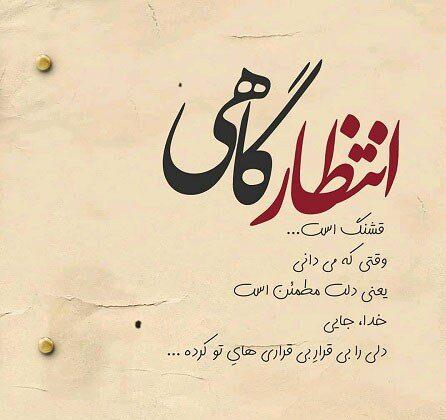 انتظار گاهی
قشنگ است...
وقتی که می دانی
یعنی دلت مطمئن است
خدا، جایی
دلی را بی قرارِ بی قراری هایِ تو کرده ...